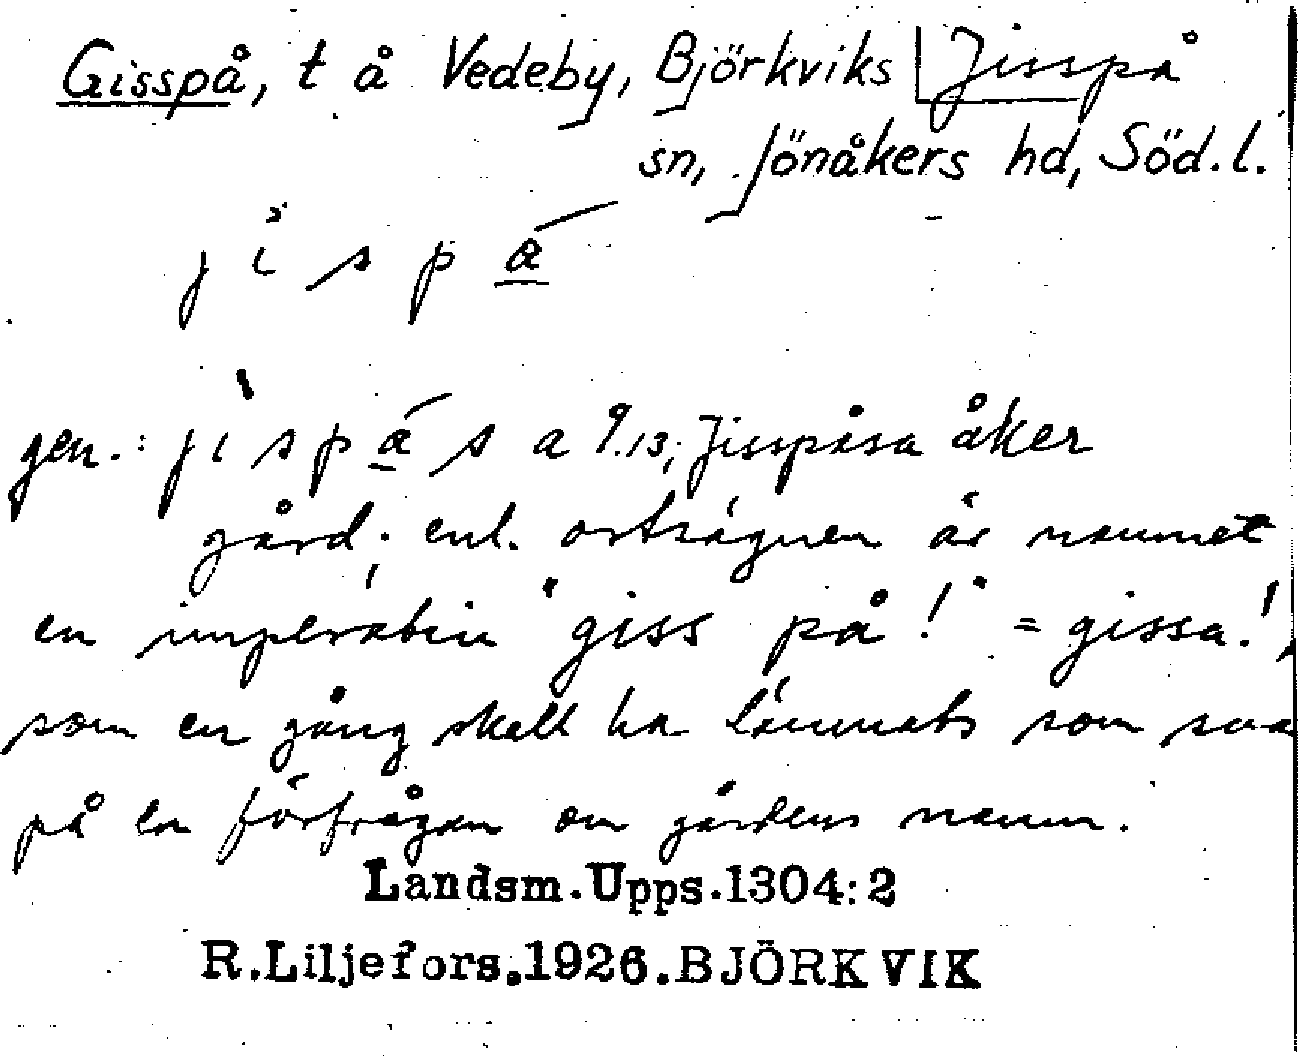 Gisspå, t å Vedeby, Björkviks Jisspå
sn, Jönåkers hd, Söd. l.
j i s p å
gen.: j i s p å s a 9.13; Jisspåsa åker
gård; enl. ortsägnen är namnet
en imperativ "giss på!" = gissa!,
som en gång skall ha lämnats som sva
på en förfrågan om gårdens namn.
Landsm. Upps. 1304:2
R. Liljefors. 1926. BJÖRKVIK